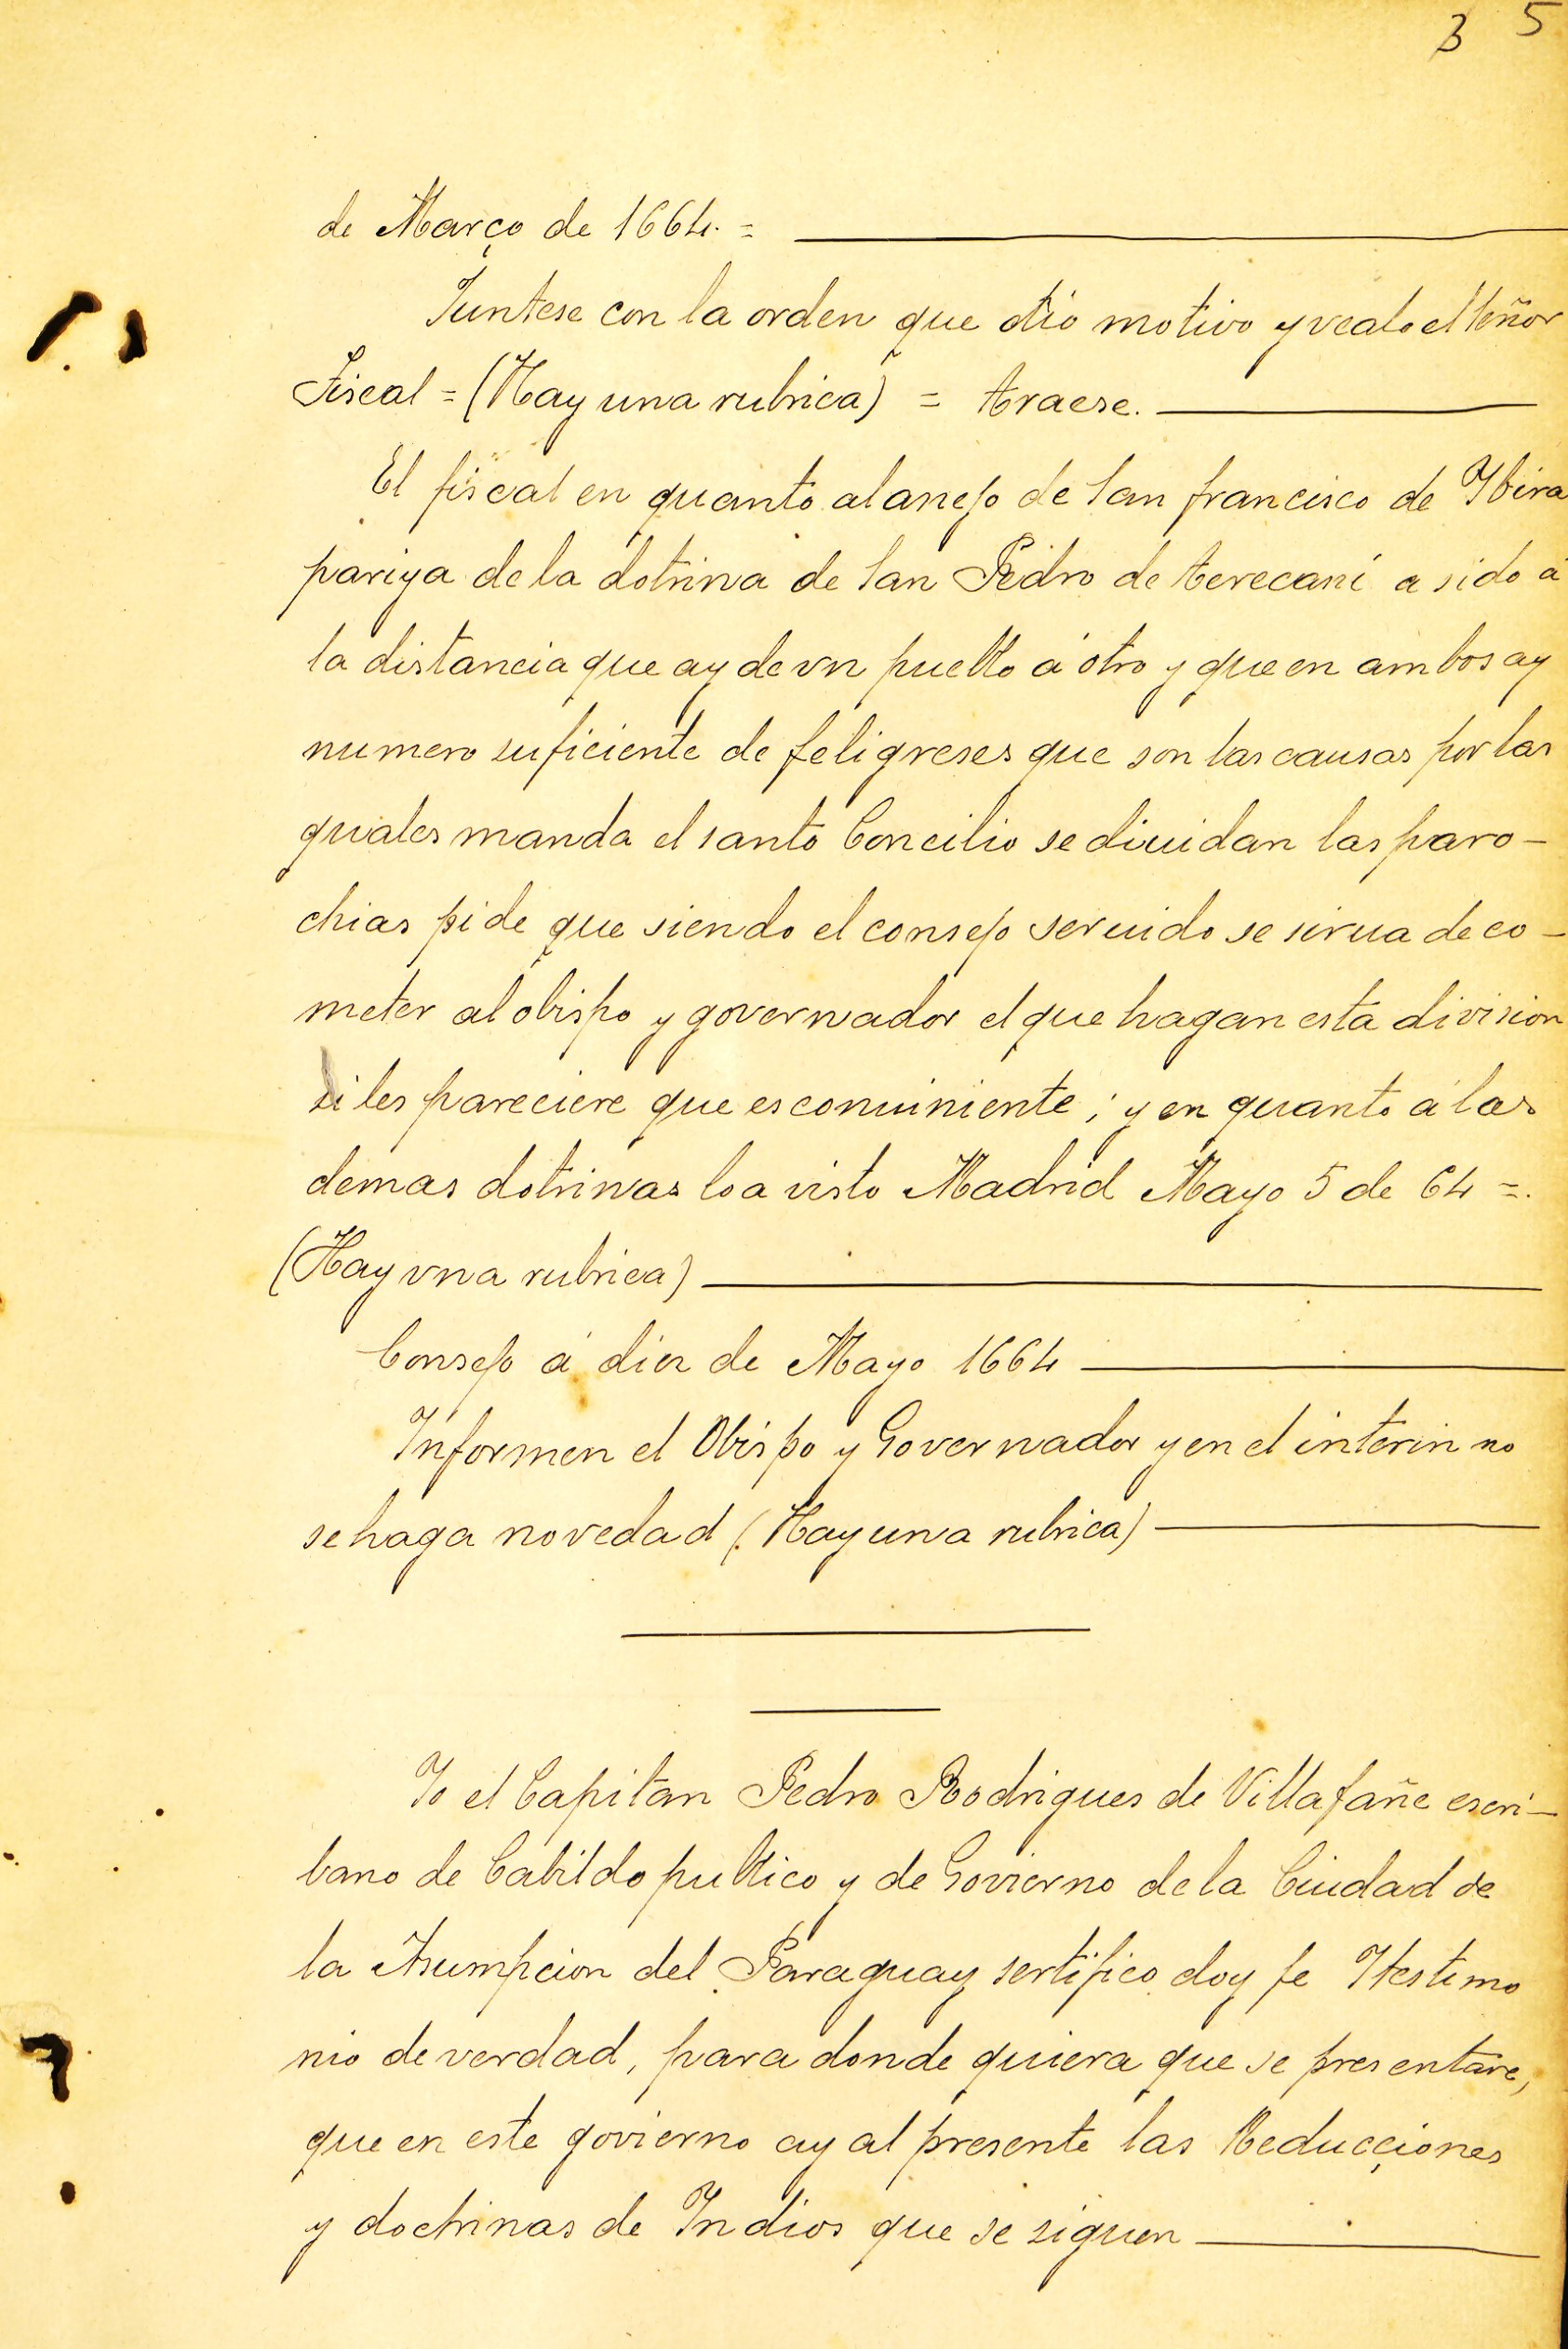 3 5
de Março de 1664. =
Iuntese con la orden que dió motivo y vealo el señor
Fiscal = (Hay una rubrica) = traese.
El fiscal en quanto al anejo de san francisco de Ybira
pariya de la dotrina de san Pedro de terecañi a sido á
la distancia que ay de vn pueblo á otro y que en ambos ay
numero suficiente de feligreses que son las causas por las
quales manda el santo Concilio se diuidan las paro-
chias pide que siendo el consejo seruido se sirua de co-
meter al obispo y governador el que hagan esta division
si les pareciere que es conuiniente; y en quanto á las
demas dotrinas lo a visto Madrid Mayo 5 de 64 =.
(Hay vna rubrica)
Consejo á diez de Mayo 1664
Informen el Obispo y Governador y en el interin no
se haga novedad (Hay una rubrica)
Yo el Capitan Pedro Rodrigues de Villafañe escri-
bano de Cabildo publico y de Govierno de la Ciudad de
la Asumpcion del Paraguay sertifico doy fe Ytestimo
nio de verdad, para donde quiera que se presentare,
que en este govierno ay al presente las Reducçiones
y doctrinas de Indios que se siguen